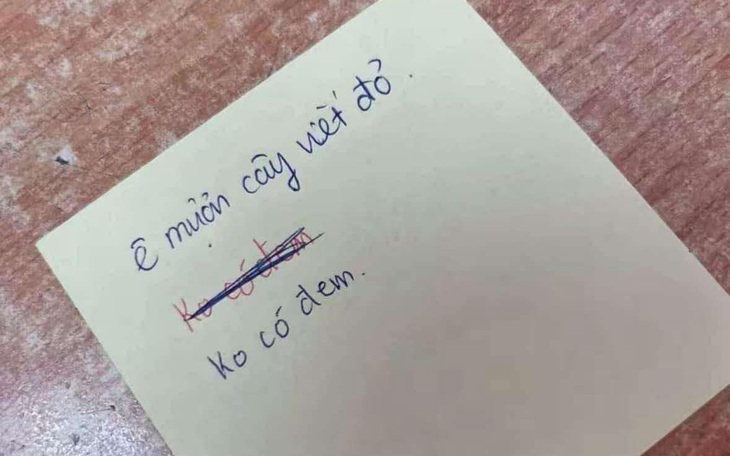 ê mượn cây viết đỏ.
Ko có đem
Ko có đem.